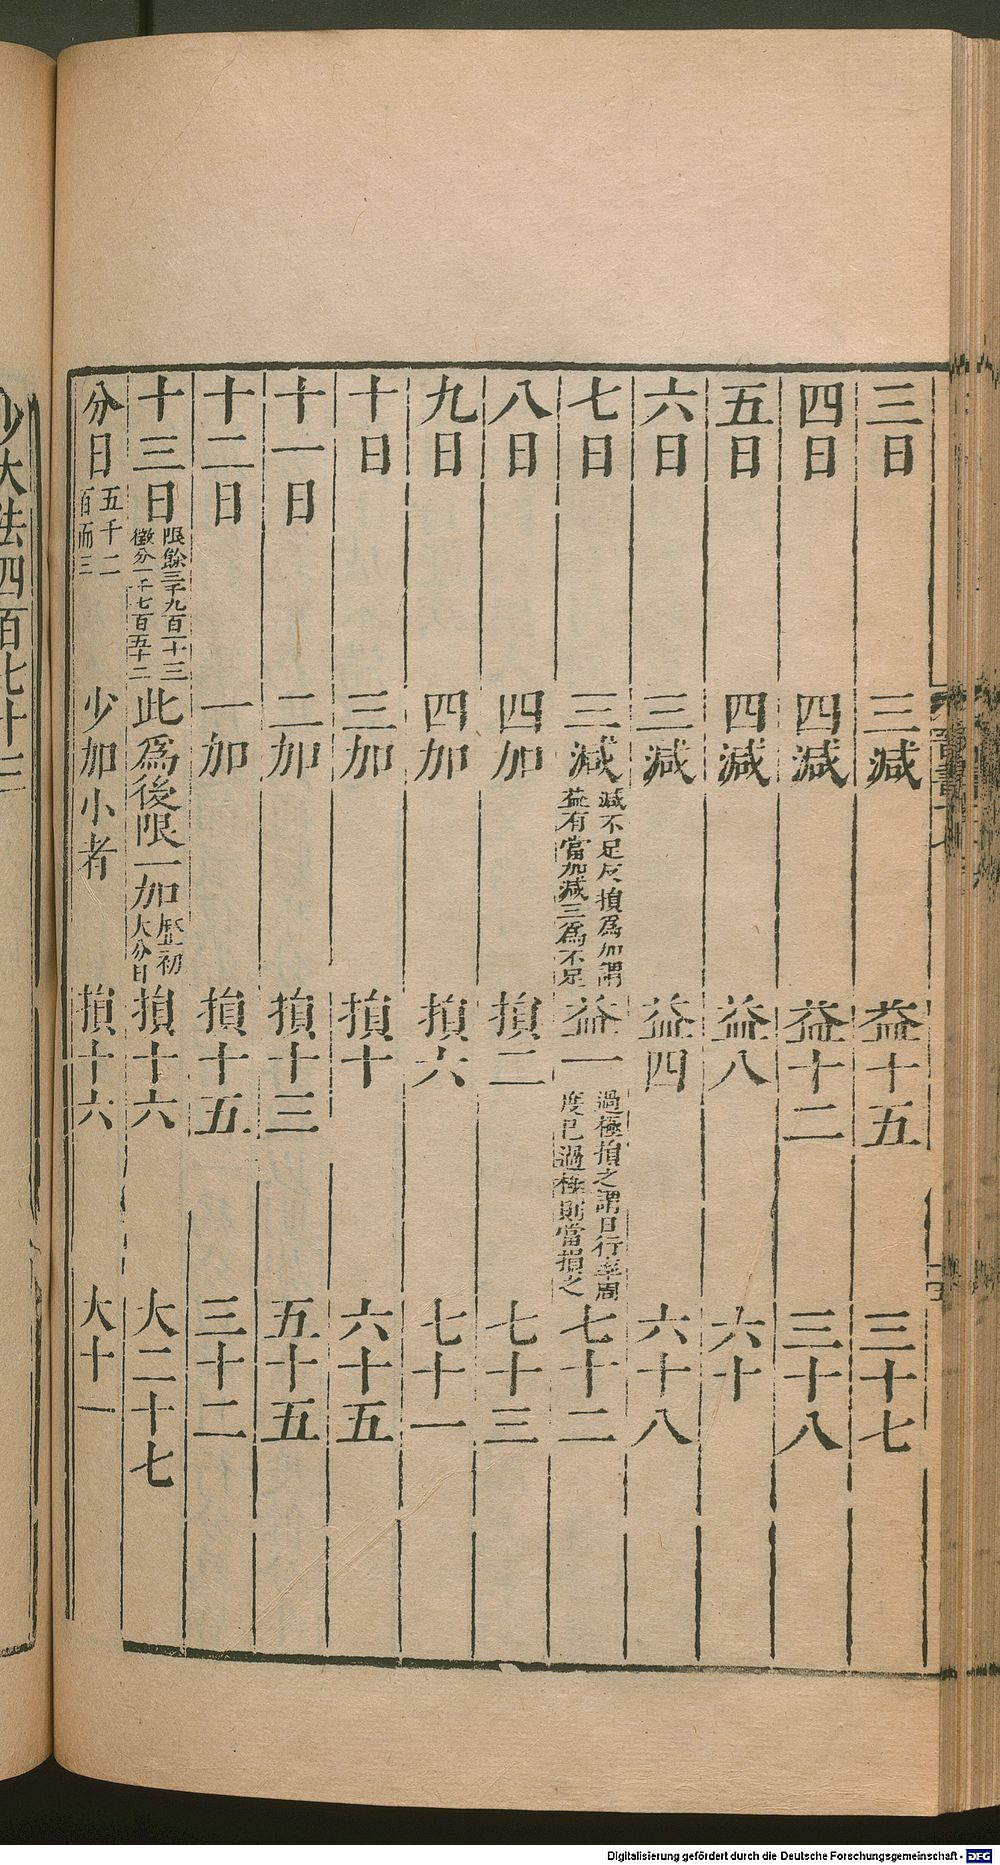 三日 三減 益十五 三十七
四日 四減 益十二 三十八
五日 四減 益八 六十
六日 三減 益四 六十八
七日 三減 減不足反損為加謂
益有當加減三為不足 益一 過極損之謂日行率周
度已過極則當損之 七十二
八日 四加 損二 七十三
九日 四加 損六 七十一
十日 三加 損十 六十五
十一日 二加 損十三 五十五
十二日 一加 損十五 三十二
十三日 限餘三千九百一十三
微分一千七百五十二 此為後限一加 歷初
大分日 損十六 大二十七
分日 五千二
百而三 少加小者 損十六 大十一
少大法四百七十三
Digitalisierung gefördert durch die Deutsche Forschungsgemeinschaft - DFG